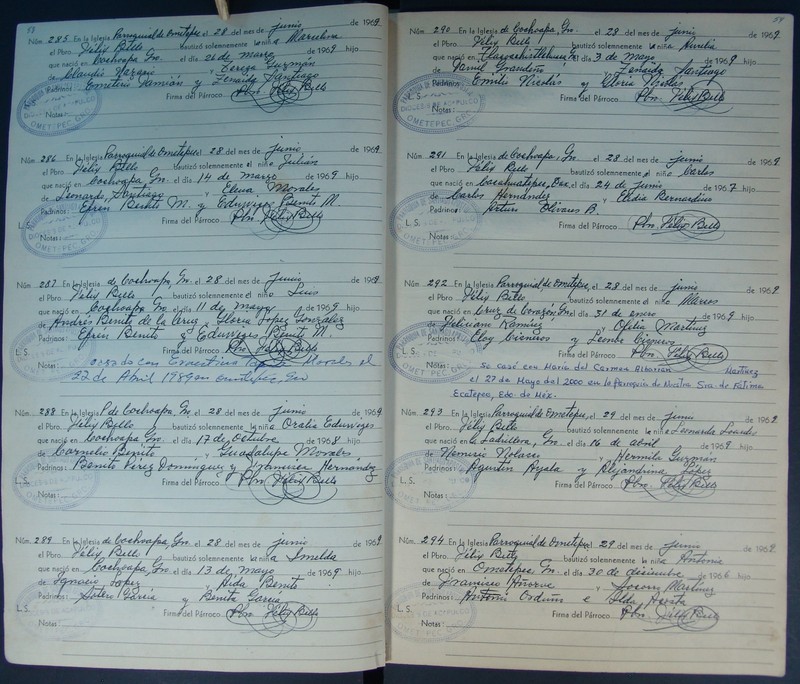 53
Núm. 285 En la Iglesia Parroquial de Ometepec el 28 del mes de junio de 1969.
el Pbro. Félix Bello bautizó solemnemente la niña Marcelina
que nació en Cochoapa Gro. el día 21 de marzo de 1969 hijo
de Claudio Vázquez y Teresa Guzmán
Padrinos: Emeterio Damián y Zenaida Santiago
L. S. Firma del Párroco Pbro. Félix Bello
Notas:
Núm. 286 En la Iglesia Parroquial de Ometepec 28 del mes de junio de 1969.
el Pbro. Félix Bello bautizó solemnemente el niño Julián
que nació en Cochoapa, Gro. el día 14 de marzo de 1969 hijo
de Leonardo Santiago y Elena Morales
Padrinos: Efrén Benito M. y Eduviges Benito M.
L. S. Firma del Párroco Pbro. Félix Bello
Notas:
Núm. 287 En la Iglesia de Cochoapa, Gro. el 28 del mes de junio de 1969.
el Pbro. Félix Bello bautizó solemnemente el niño Luis
que nació en Cochoapa Gro. el día 11 de mayo de 1969 hijo
de Andrés Benito de la Cruz y Gloria López González
Padrinos: Efrén Benito y Eduviges Benito M.
L. S. Firma del Párroco Pbro. Félix Bello
Notas: casado con Ernestina Morales el
22 de Abril 1989 en Ometepec Gro
Núm. 288 En la Iglesia P. de Cochoapa, Gro. el 28 del mes de junio de 1969.
el Pbro. Félix Bello bautizó solemnemente la niña Oralia Eduviges
que nació en Cochoapa, Gro. el día 17 de octubre de 1968 hijo
de Cornelio Benito y Guadalupe Morales
Padrinos: Benito Pérez Domínguez y Francisca Hernández
L. S. Firma del Párroco Pbro. Félix Bello
Notas:
Núm. 289 En la Iglesia de Cochoapa, Gro. el 28 del mes de junio de 1969.
el Pbro. Félix Bello bautizó solemnemente la niña Imelda
que nació en Cochoapa, Gro. el día 13 de mayo de 1969 hijo
de Ignacio López y Aida Benito
Padrinos: Sotero García y Benita García
L. S. Firma del Párroco Pbro. Félix Bello
Notas:
54
Núm. 290 En la Iglesia de Cochoapa, Gro. el 28 del mes de junio de 1969.
el Pbro. Félix Bello bautizó solemnemente la niña Amelia
que nació en el día 3 de mayo de 1969 hijo
de y Zenaida Santiago
Padrinos: Emilio Nicolás y Gloria Nicolás
L. S. Firma del Párroco Pbro. Félix Bello
Notas:
Núm. 291 En la Iglesia de Cochoapa, Gro. el 28 del mes de junio de 1969
el Pbro. Félix Bello bautizó solemnemente el niño Carlos
que nació en Cacahuatepec, Oax. el día 24 de junio de 1967 hijo
de Carlos Hernández y Elidia Bernardino
Padrinos: Arturo Olivares B.
L. S. Firma del Párroco Pbro. Félix Bello
Notas:
Núm. 292 En la Iglesia Parroquial de Ometepec, el 28 del mes de junio de 1969.
el Pbro. Félix Bello bautizó solemnemente el niño Marcos
que nació en Cruz de Corazón, Gro. el día 31 de enero de 1969 hijo
de Feliciano Ramírez y Ofilia Martínez
Padrinos: Eloy Cisneros y Leonor Cisneros
L. S. Firma del Párroco Pbro. Félix Bello
Notas: Se casó con María del Carmen Martínez
el 27 de Mayo del 2000 en la parroquia de Nuestra Sra. de Fátima
Ecatepec, Edo. de Méx.
Núm. 293 En la Iglesia Parroquial de Ometepec, el 29 del mes de junio de 1969.
el Pbro. Félix Bello bautizó solemnemente la niña Leonarda Lourdes
que nació en La Ladrillera, Gro. el día 16 de abril de 1969 hijo
de Nemorio Nolasco y Hermila Guzmán
Padrinos: Agustín Ayala y Alejandrina López
L. S. Firma del Párroco Pbro. Félix Bello
Notas:
Núm. 294 En la Iglesia Parroquial de Ometepec, el 29 del mes de junio de 1969.
el Pbro. Félix Bello bautizó solemnemente la niña Antonia
que nació en Ometepec Gro. el día 30 de diciembre de 1966 hijo
de Francisco Añorve y Socorro Martínez
Padrinos: Antonio Orduño e Ilda Acosta
L. S. Firma del Párroco Pbro. Félix Bello
Notas: